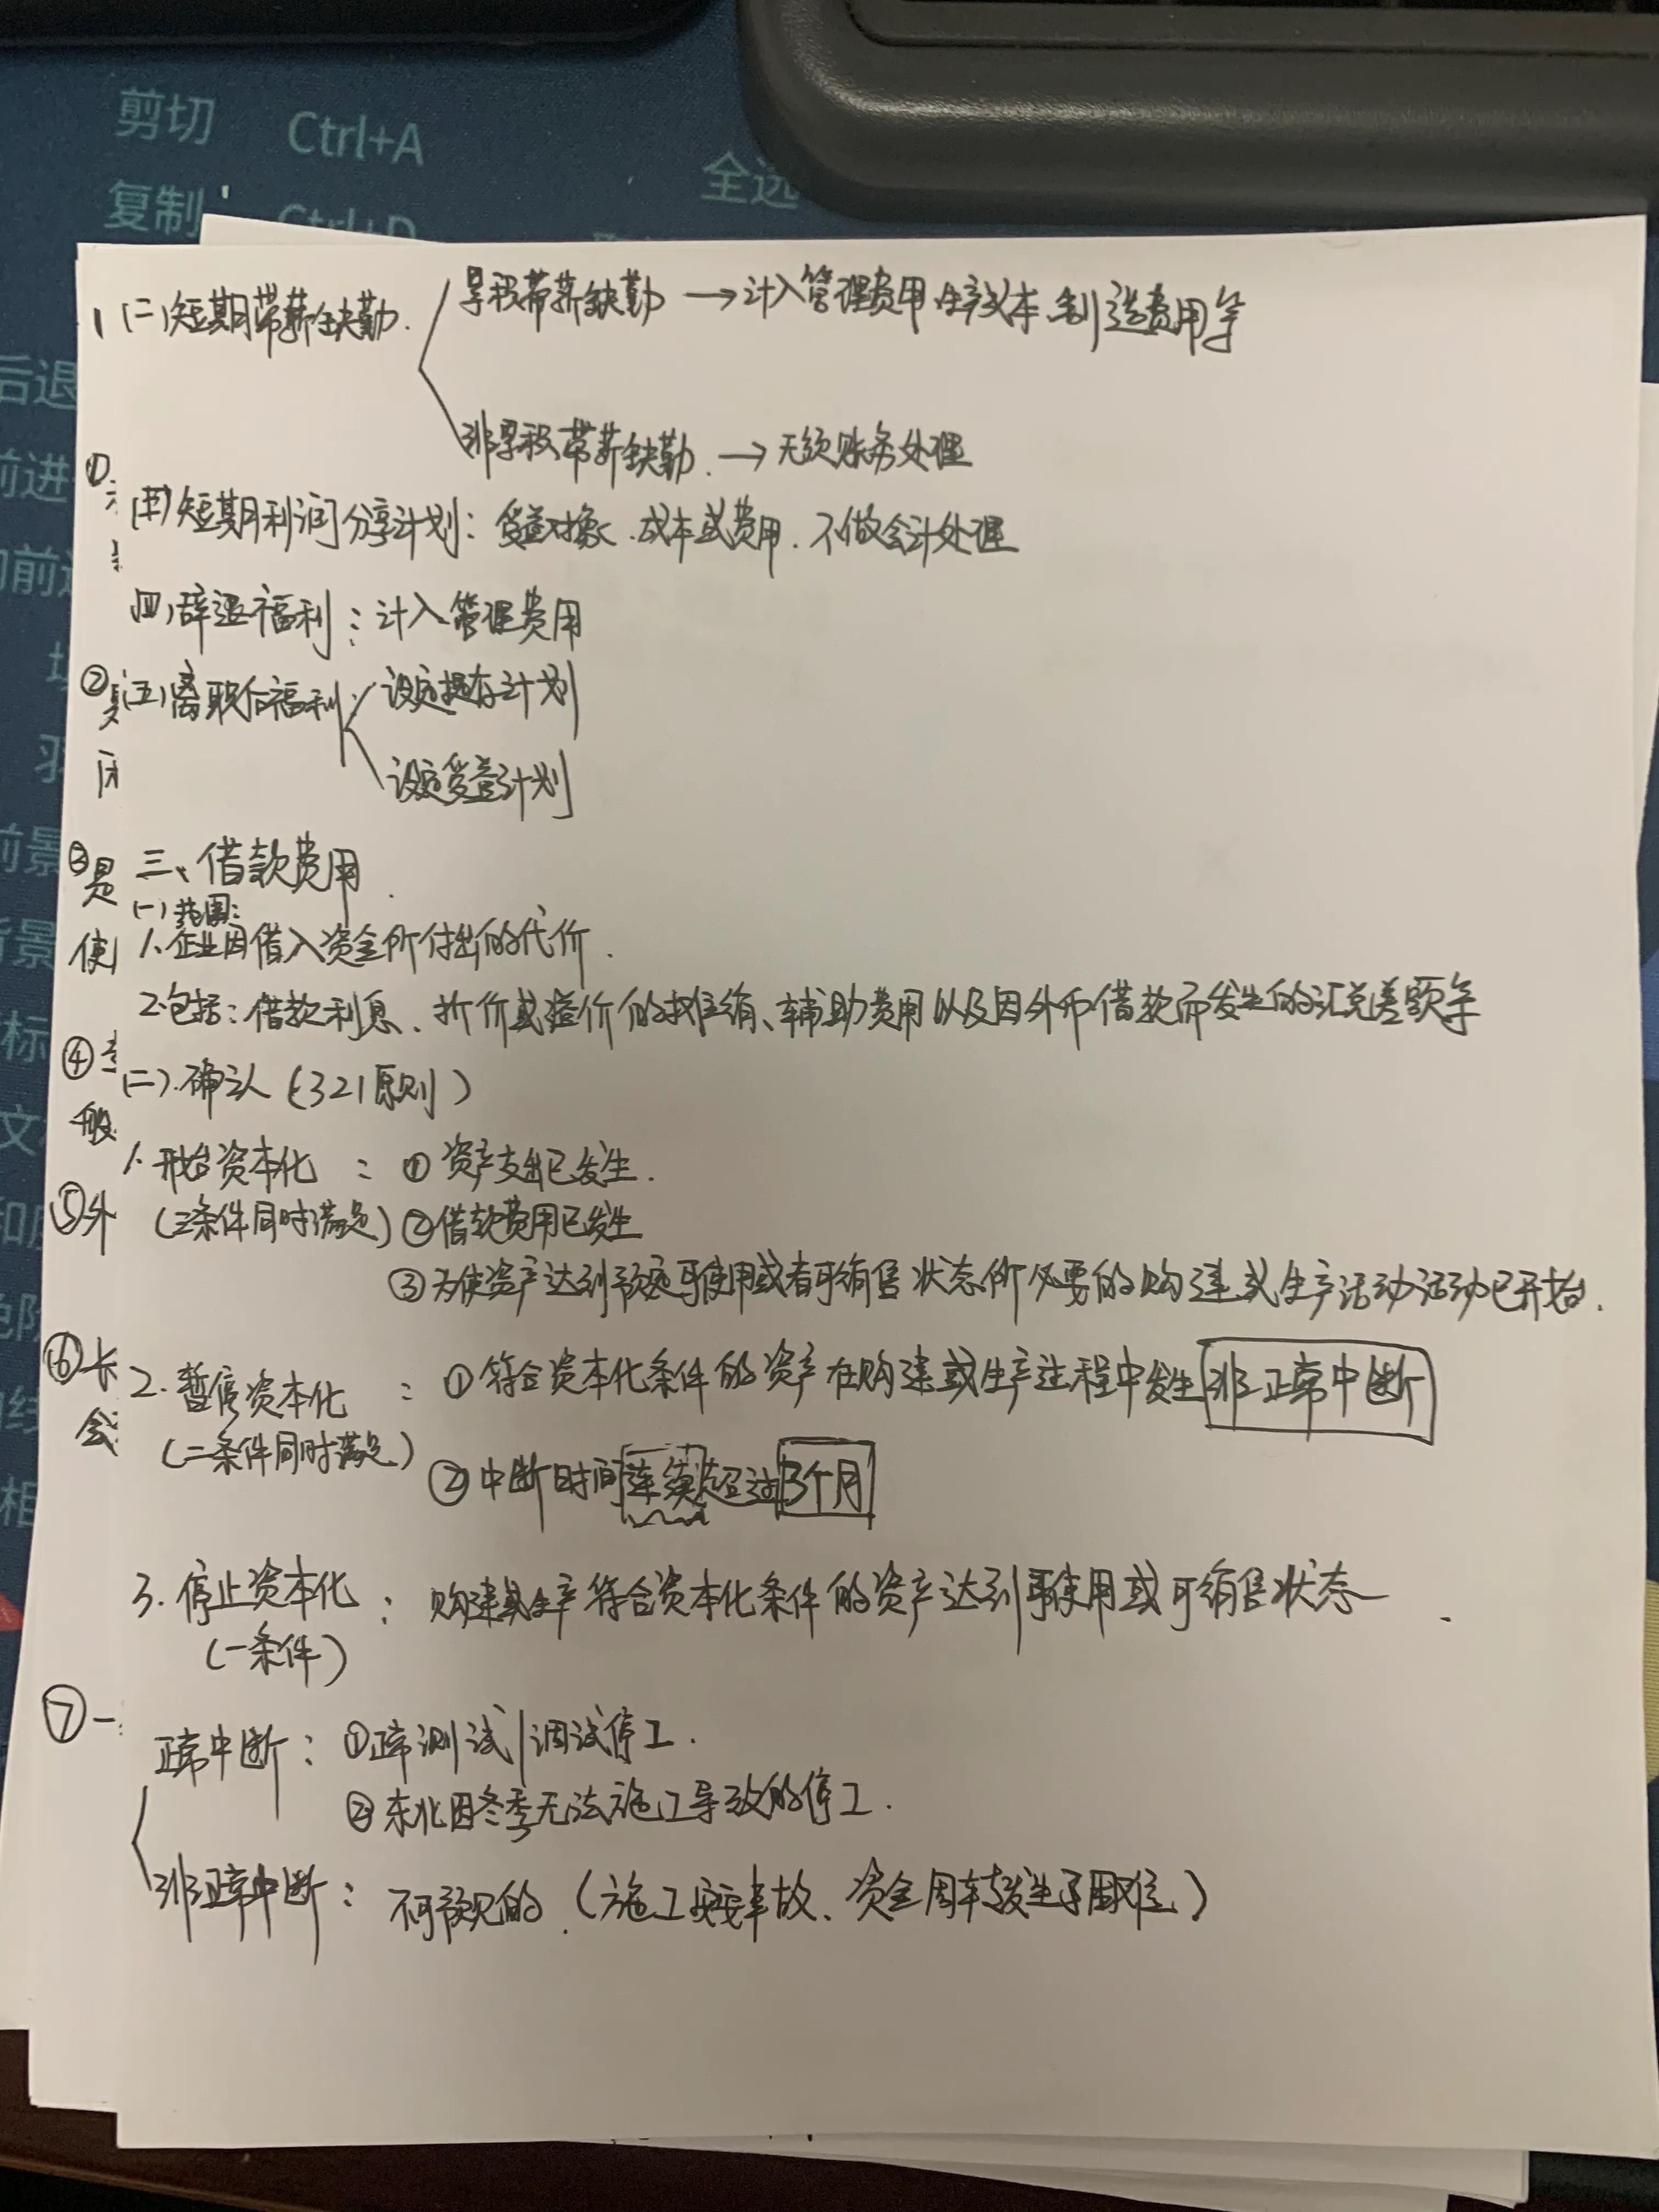 剪切 Ctrl+A
全选
复制 Ctrl+D
后退
前进
(二)短期带薪缺勤
累积带薪缺勤 → 计入管理费用.生产成本.制造费用等
非累积带薪缺勤. → 无须账务处理
①
短期利润分享计划: 受益对象.成本或费用.不做会计处理
(四)辞退福利: 计入管理费用
② (五)离职后福利: 设定提存计划
设定受益计划
③ 是 三、借款费用
(一)范围:
使 1.企业因借入资金所付出的代价.
2.包括: 借款利息、折价或溢价的摊销、辅助费用以及因外币借款而发生的汇兑差额等
④ (二).确认(321原则)
般
1.开始资本化: ①资产支出已发生.
⑤外 (三条件同时满足) ②借款费用已发生
③为使资产达到预定可使用或者可销售状态所必要的购建或生产活动活动已开始.
⑥长 2.暂停资本化: ①符合资本化条件的资产在购建或生产过程中发生非正常中断
会 (二条件同时满足)
②中断时间连续超过3个月
3.停止资本化: 购建或生产符合资本化条件的资产达到可使用或可销售状态.
(一条件)
⑦一
正常中断: ①正常测试|调试停工.
②东北因冬季无法施工导致的停工.
非正常中断: 不可预见的.(施工安全事故、资金周转发生了困难)